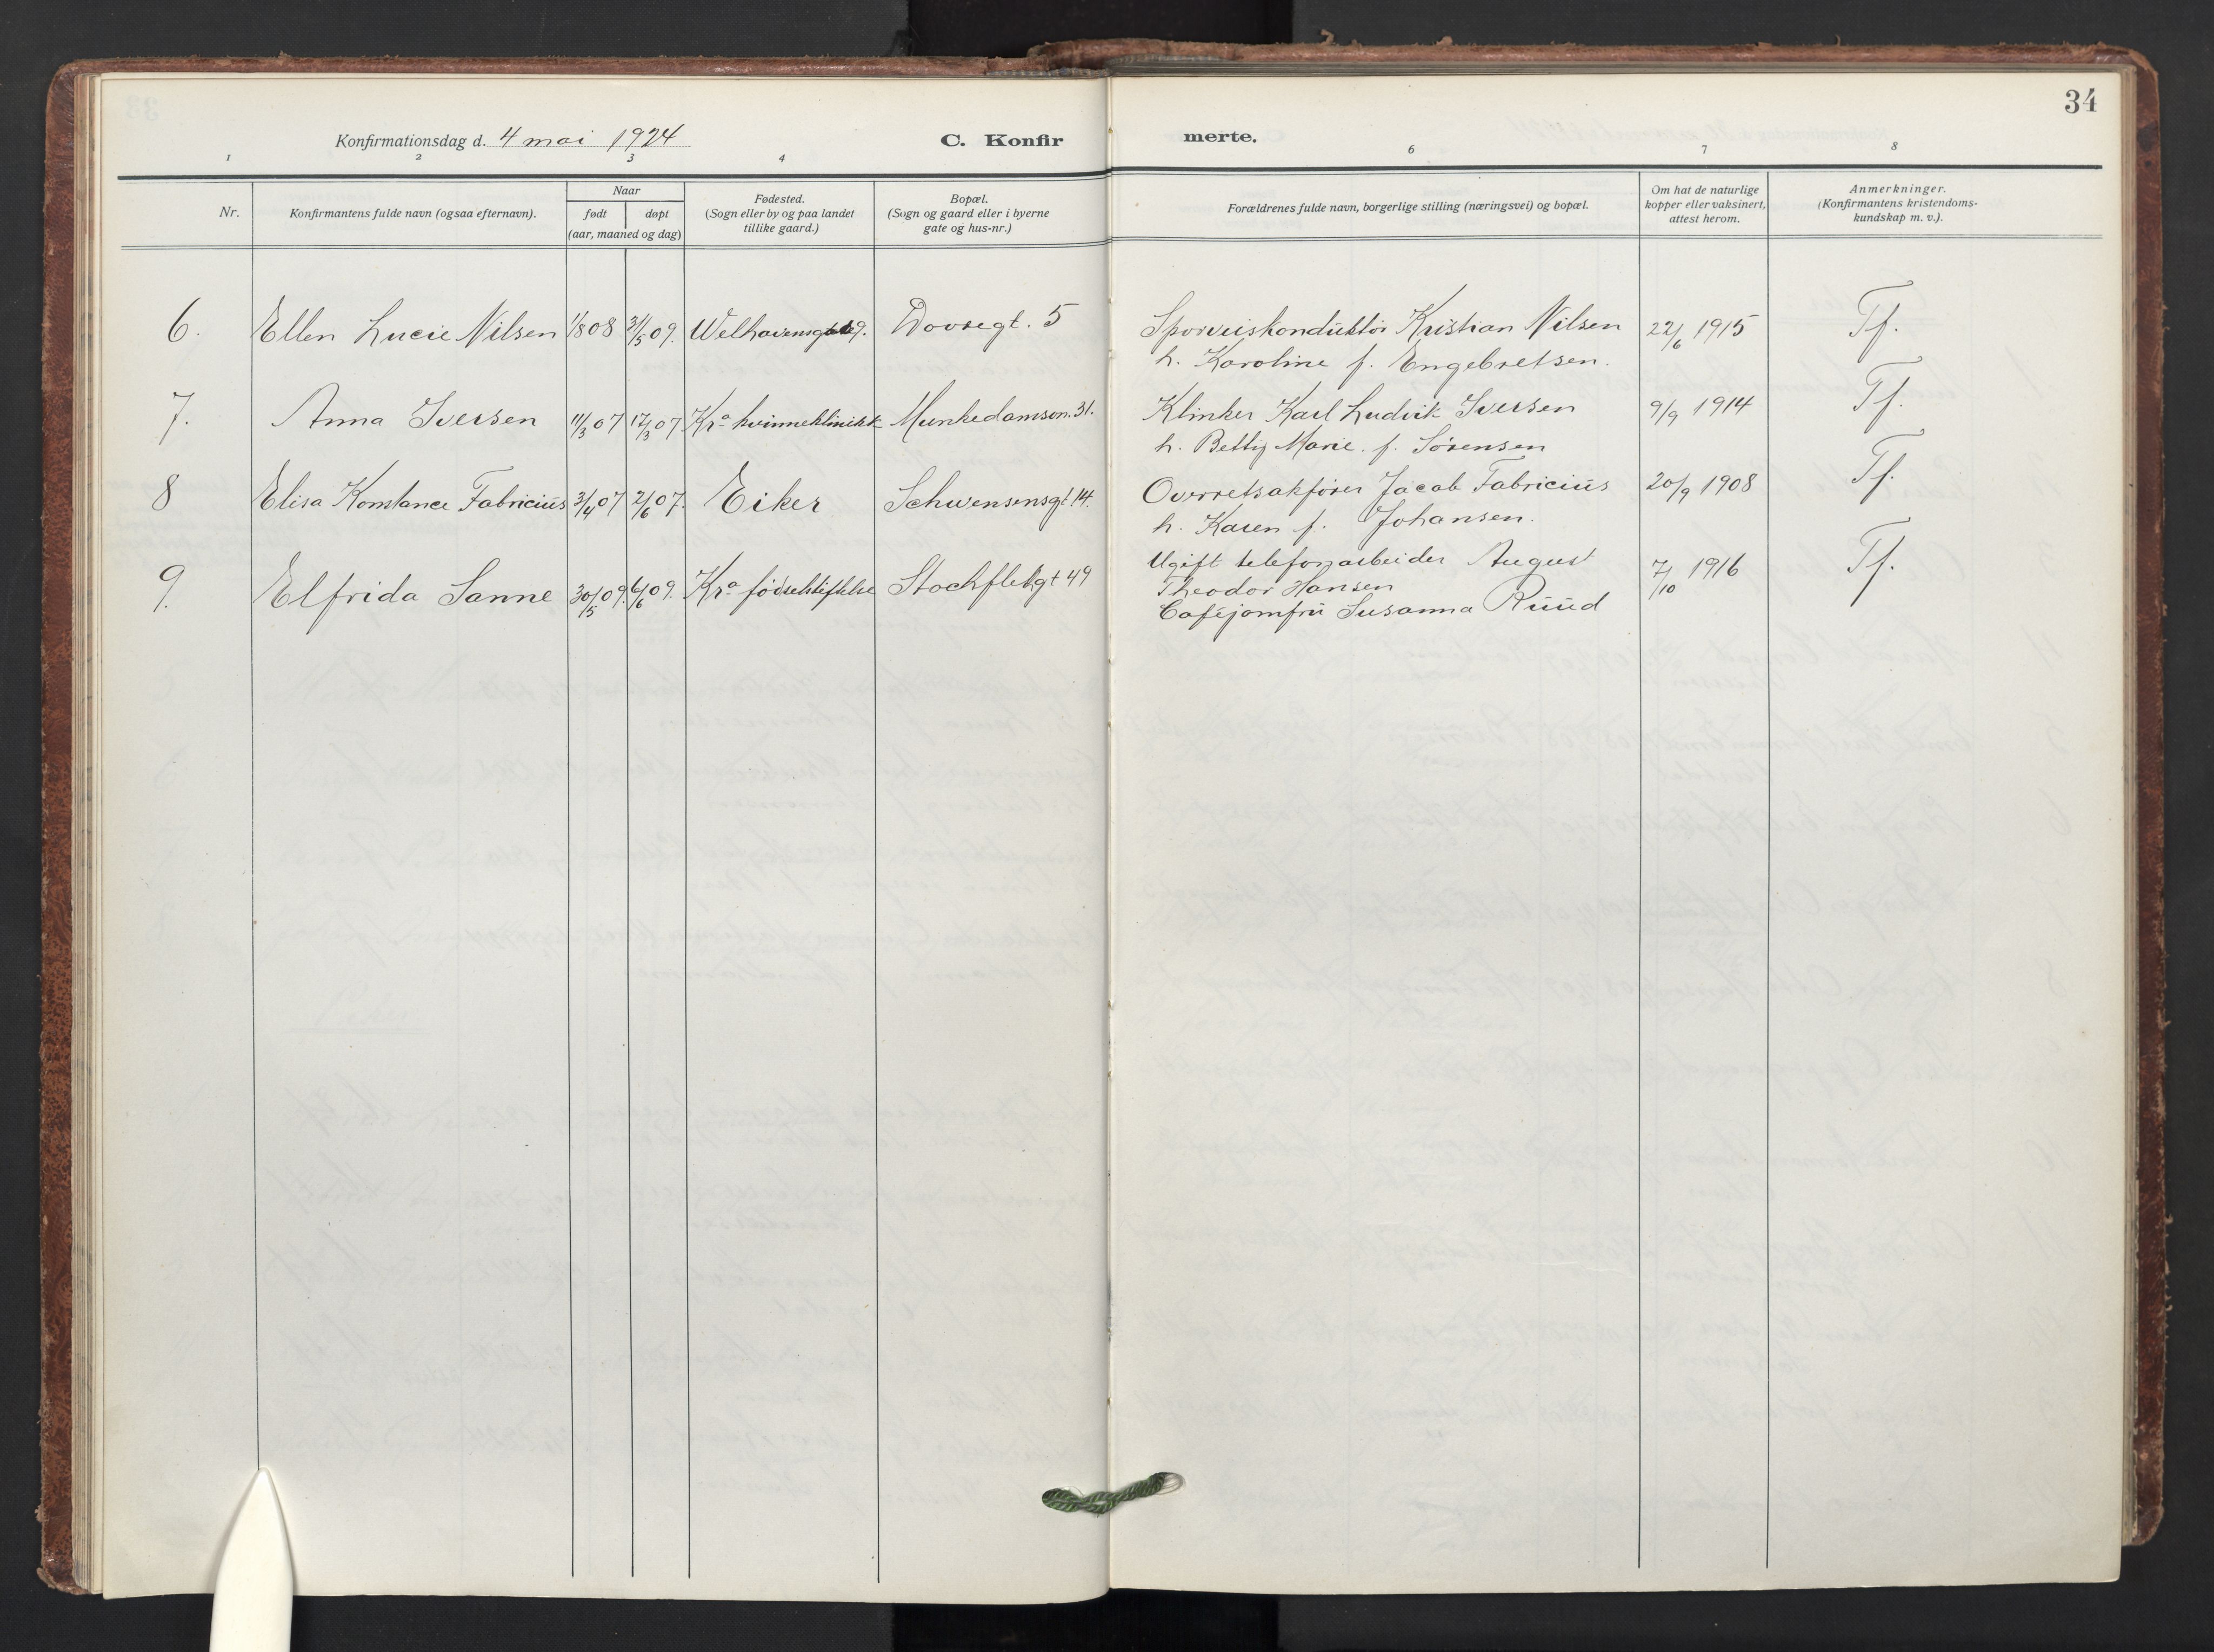 34
Konfirmationsdag d. 4 mai 1924
C. Konfirmerte.
1 2 3 4 6 7 8
Nr.
Konfirmantens fulde navn (ogsaa efternavn).
Naar
født døpt
(aar, maaned og dag)
Fødested.
(Sogn eller by og paa landet
tillike gaard.)
Bopæl.
(Sogn og gaard eller i byerne
gate og hus-nr.)
Forældrenes fulde navn, borgerlige stilling (næringsvei) og bopæl.
Om hat de naturlige
kopper eller vaksinert,
attest herom.
Anmerkninger.
(Konfirmantens kristendoms-
kundskap m. v.).
6. Ellen Lucie Nilsen 1/8 08 31/5 09. Welhavensgate 9. Dovregt. 5 Sporveiskonduktör Kristian Nilsen 22/6 1915 Tf.
h. Karoline f. Engebretsen.
7. Anna Iversen 11/3 07 17/3 07 Kra kvinneklinikk Munkedamsvn. 31. Klinker Karl Ludvik Iversen 9/9 1914 Tf.
h. Betty Marie. f. Sörensen
8 Elisa Konstance Fabricius 3/4 07 2/6 07. Eiker Schwensensgt 14. Overretsakförer Jacob Fabricius 20/9 1908 Tf.
h. Karen f. Johansen.
9. Elfrida Sanne 30/5 09. 6/6 09. Kra födselstiftelse Stockfletgt 49 Ugift telefonarbeider August 7/10 1916 Tf.
Theodor Hansen
Caféjomfru Susanna Ruud